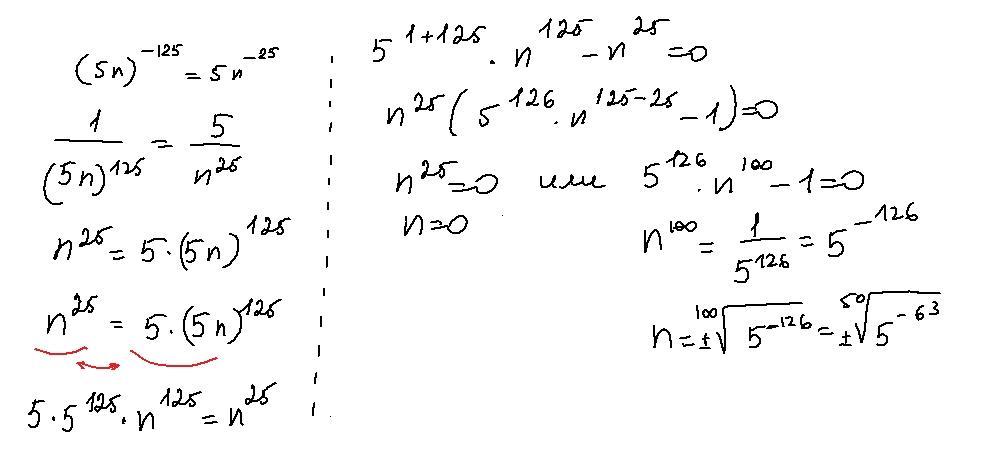 (5n)^{-125} = 5n^{-25}
\frac{1}{(5n)^{125}} = \frac{5}{n^{25}}
n^{25} = 5·(5n)^{125}
n^{25} = 5·(5n)^{125}
5·5^{125}·n^{125} = n^{25}
5^{1+125}·n^{125} - n^{25} = 0
n^{25}(5^{126}·n^{125-25} - 1) = 0
n^{25} = 0 или 5^{126}·n^{100} - 1 = 0
n = 0
n^{100} = \frac{1}{5^{126}} = 5^{-126}
n = ±\sqrt[100]{5^{-126}} = ±\sqrt[50]{5^{-63}}